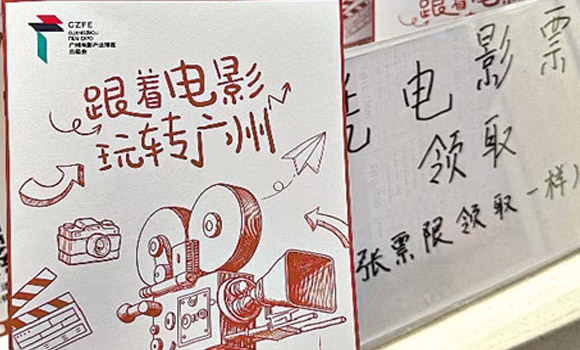 GZFE
GUANGZHOU
FILM EXPO
广州电影产业博览
交易会
跟着电影
玩转广州
凭电影票
领取
张票限领取一样)